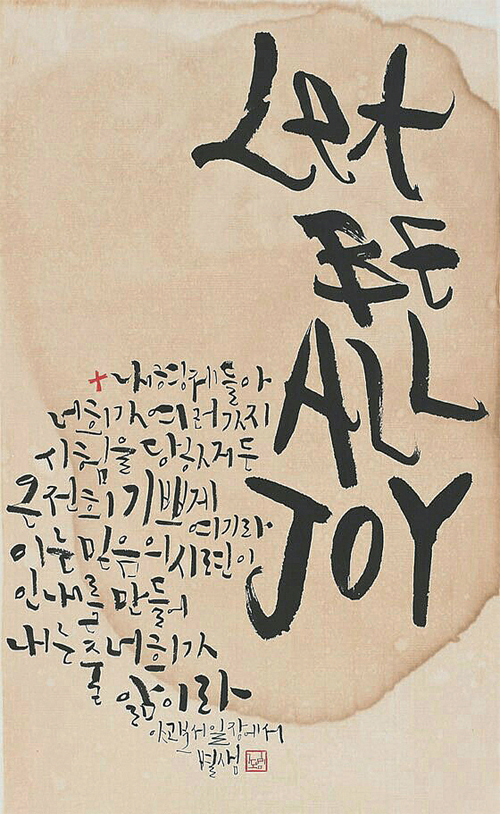 Let
BE
ALL
JOY
내 형제들아
너희가 여러가지
시험을 당하거든
온전히 기쁘게 여기라
이는 믿음의 시련이
인내를 만들어
내는 줄 너희가
앎이라
야고보서 일장에서
별샘